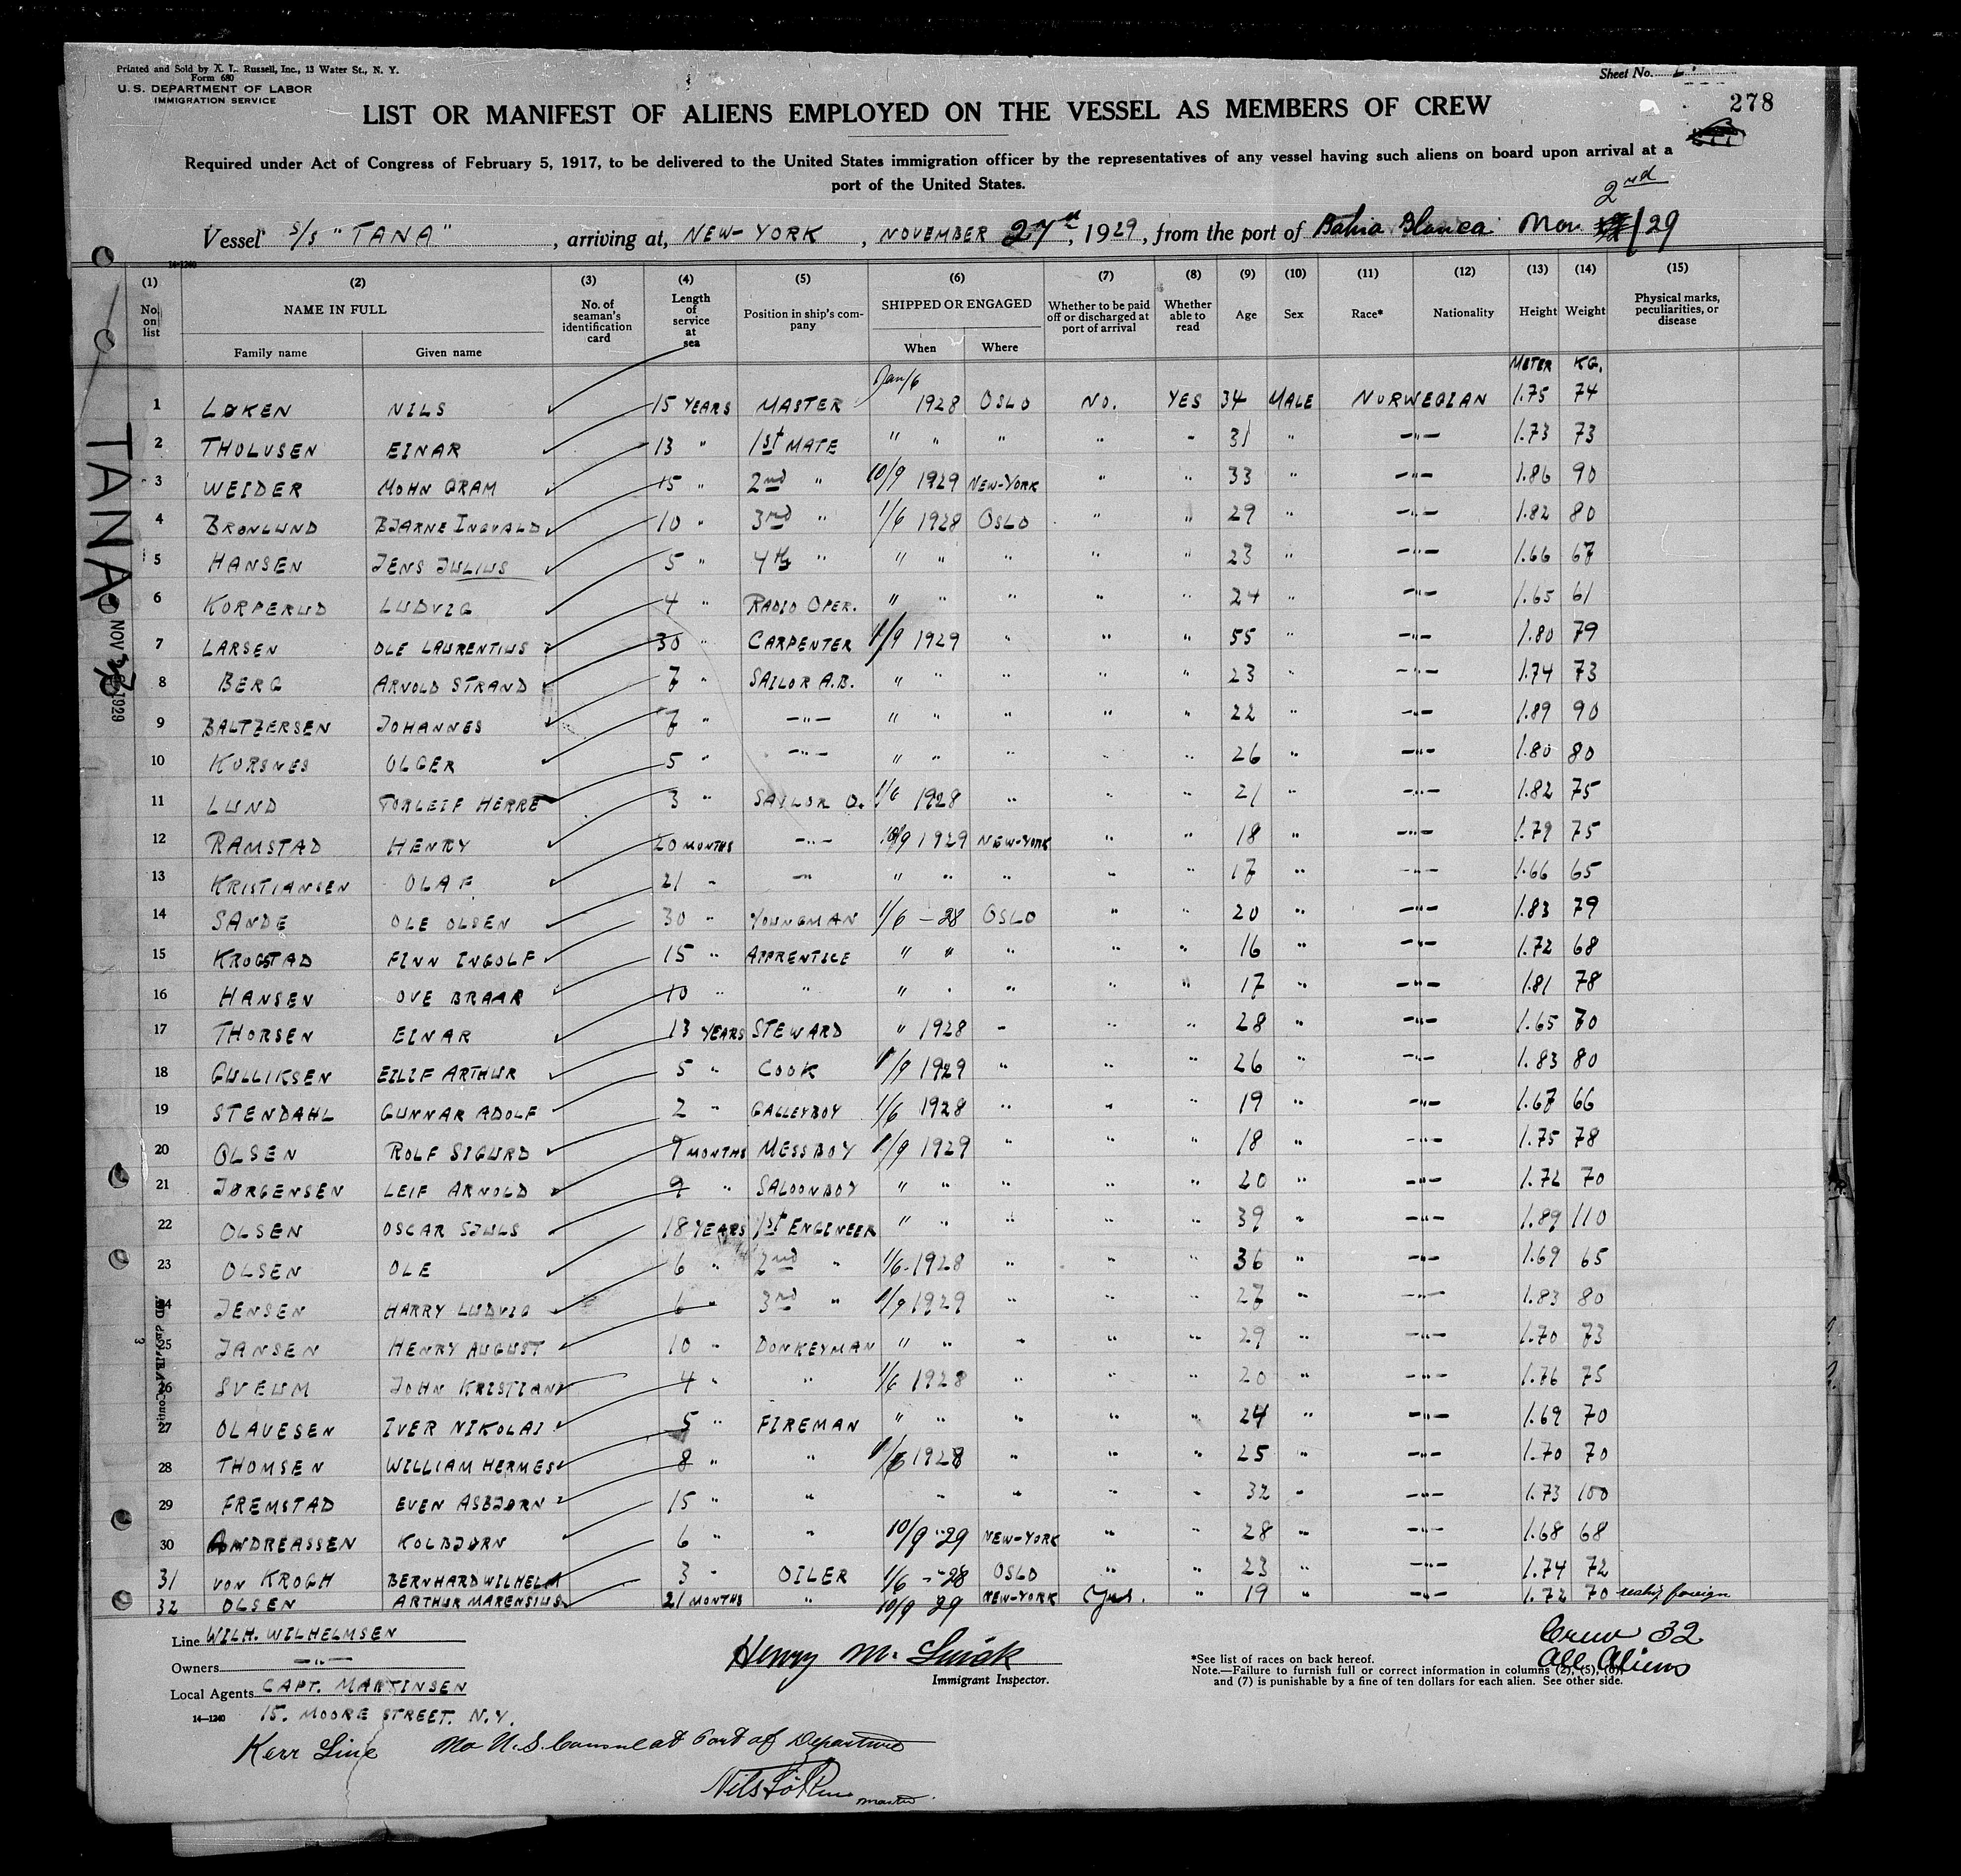 Printed and Sold by A. L. Russell, Inc., 13 Water St., N. Y.
Form 680
U. S. DEPARTMENT OF LABOR
IMMIGRATION SERVICE
Sheet No.
278
LIST OR MANIFEST OF ALIENS EMPLOYED ON THE VESSEL AS MEMBERS OF CREW
Required under Act of Congress of February 5, 1917, to be delivered to the United States immigration officer by the representatives of any vessel having such aliens on board upon arrival at a
port of the United States.
2nd
Vessel S/S "TANA", arriving at, NEW-YORK, NOVEMBER 27th, 1929, from the port of Bahia Blanca Nov. /29
14-1240
(1) (2) (3) (4) (5) (6) (7) (8) (9) (10) (11) (12) (13) (14) (15)
No. on list NAME IN FULL No. of seaman's identification card Length of service at sea Position in ship's company SHIPPED OR ENGAGED Whether to be paid off or discharged at port of arrival Whether able to read Age Sex Race* Nationality Height Weight Physical marks, peculiarities, or disease
Family name Given name When Where
METER KG.
Jan/6
1 LØKEN NILS 15 YEARS MASTER 1928 OSLO NO. YES 34 MALE NORWEGIAN 1.75 74
2 THOLUSEN EINAR 13 " 1st MATE " " " " " 31 " -"- 1.73 73
3 WEIDER MOHN GRAM 15 " 2nd " 10/9 1929 NEW-YORK " " 33 " -"- 1.86 90
4 BRØNLUND BJARNE INGVALD 10 " 3rd " 1/6 1928 OSLO " " 29 " -"- 1.82 80
5 HANSEN JENS JULIUS 5 " 4th " " " " " " 23 " -"- 1.66 67
6 KORPERUD LUDVIG 4 " RADIO OPER. " " " " " 24 " -"- 1.65 61
7 LARSEN OLE LAURENTIUS 30 " CARPENTER 1/9 1929 " " " 55 " -"- 1.80 79
8 BERG ARNOLD STRAND 7 " SAILOR A.B. " " " " " 23 " -"- 1.74 73
9 BALTZERSEN JOHANNES 7 " -"- " " " " " 22 " -"- 1.89 90
10 KORSNES OLGER 5 " -"- " " " " 26 " -"- 1.80 80
11 LUND TORLEIF HERRE 3 " SAILOR O. 1/6 1928 " " " 21 " -"- 1.82 75
12 RAMSTAD HENRY 20 MONTHS -"- 10/9 1929 NEW-YORK " " 18 " -"- 1.79 75
13 KRISTIANSEN OLAF 21 " -"- " " " " " 17 " -"- 1.66 65
14 SANDE OLE OLSEN 30 " YOUNGMAN 1/6 -28 OSLO " " 20 " -"- 1.83 79
15 KROGSTAD FINN INGOLF 15 " APPRENTICE " " " " " 16 " -"- 1.72 68
16 HANSEN OVE BRAAR 10 " " " " " " " 17 " -"- 1.81 78
17 THORSEN EINAR 13 YEARS STEWARD " 1928 " " " 28 " -"- 1.65 70
18 GULLIKSEN EILIF ARTHUR 5 " COOK 1/9 1929 " " " 26 " -"- 1.83 80
19 STENDAHL GUNNAR ADOLF 2 " GALLEYBOY 1/6 1928 " " " 19 " -"- 1.67 66
20 OLSEN ROLF SIGURD 9 MONTHS MESSBOY 1/9 1929 " " " 18 " -"- 1.75 78
21 JØRGENSEN LEIF ARNOLD 9 " SALOONBOY " " " " " 20 " -"- 1.72 70
22 OLSEN OSCAR SJULS 18 YEARS 1st ENGINEER " " " " " 39 " -"- 1.89 110
23 OLSEN OLE 6 " 2nd " 1/6-1928 " " " 36 " -"- 1.69 65
24 JENSEN HARRY LUDVIG 6 " 3rd " 1/9 1929 " " " 27 " -"- 1.83 80
25 JANSEN HENRY AUGUST 10 " DONKEYMAN " " " " " 29 " -"- 1.70 73
26 SVEUM JOHN KRISTIAN 4 " " 1/6 1928 " " " 20 " -"- 1.76 75
27 OLAVESEN IVER NIKOLAI 5 " FIREMAN " " " " " 24 " -"- 1.69 70
28 THOMSEN WILLIAM HERMES 8 " " 1/6 1928 " " " 25 " -"- 1.70 70
29 FREMSTAD EVEN ASBJØRN 15 " " " " " " 32 " -"- 1.73 100
30 ANDREASSEN KOLBJØRN 6 " " 10/9 -29 NEW-YORK " " 28 " -"- 1.68 68
31 VON KROGH BERNHARD WILHELM 3 " OILER 1/6 -28 OSLO " " 23 " -"- 1.74 72
32 OLSEN ARTHUR MARENSIUS 21 MONTHS " 10/9 29 NEW-YORK Yes. " 19 " -"- 1.72 70 reship foreign
TANA
NOV 1929
Line WILH. WILHELMSEN
Owners -"-
Local Agents CAPT. MARTINSEN
14-1240 15. MOORE STREET. N.Y.
Henry M.
Immigrant Inspector.
*See list of races on back hereof.
Note.—Failure to furnish full or correct information in columns (2), (5), (6),
and (7) is punishable by a fine of ten dollars for each alien. See other side.
Crew 32
All Aliens
Kerr Line No U.S. Consul at Port of Departure
Nils Løken master.